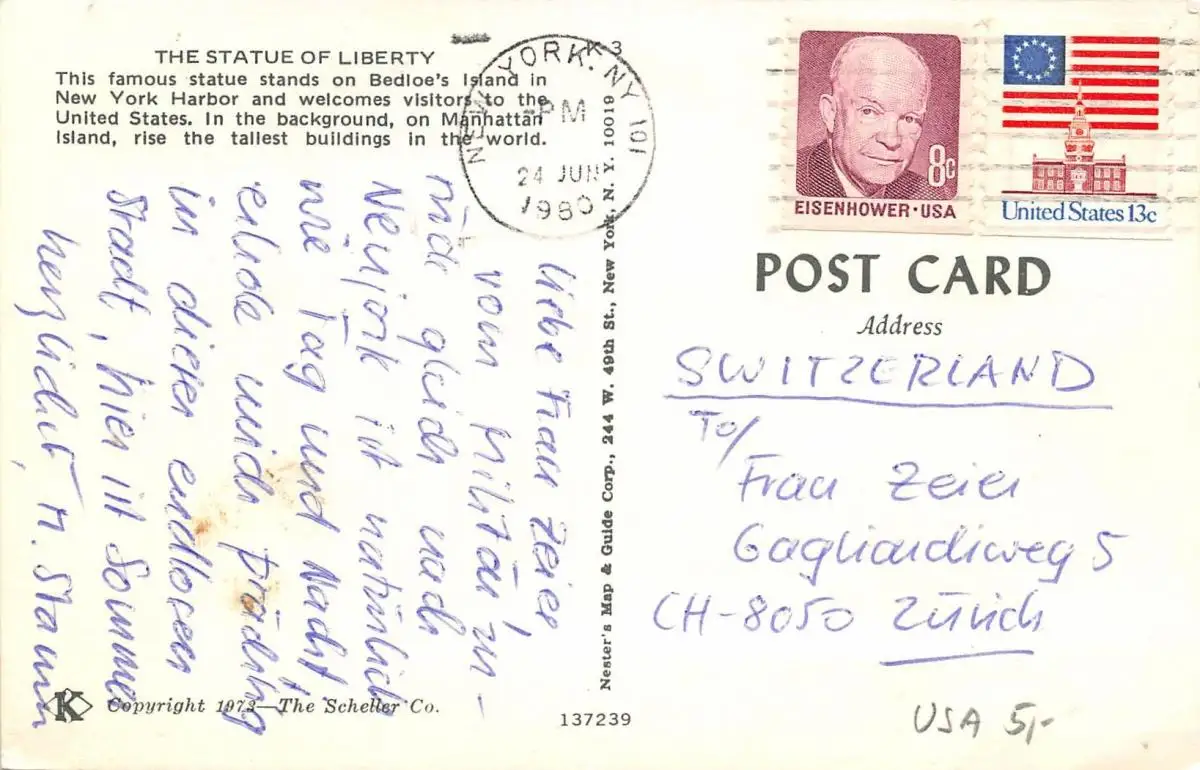 THE STATUE OF LIBERTY
This famous statue stands on Bedloe's Island in
New York Harbor and welcomes visitors to the
United States. In the background, on Manhattan
Island, rise the tallest buildings in the world.
K 3
NEW YORK, NY 101
PM
24 JUN
1980
8c
EISENHOWER·USA
United States 13c
liebe Frau Zeier,
vom Militär zu-
rück gleich nach
ist natürlich
wie Tag und Nacht,
erhole mich prächtig
in dieser endlosen
Stadt, hier ist Sommer
herzlichst, M. Stamm
Nester's Map & Guide Corp., 244 W. 49th St., New York, N. Y. 10019
POST CARD
Address
SWITZERLAND
To/
Frau Zeier
Gagliardiweg 5
CH-8050 Zürich
K
Copyright 1973—The Scheller Co.
137239
USA 5,-